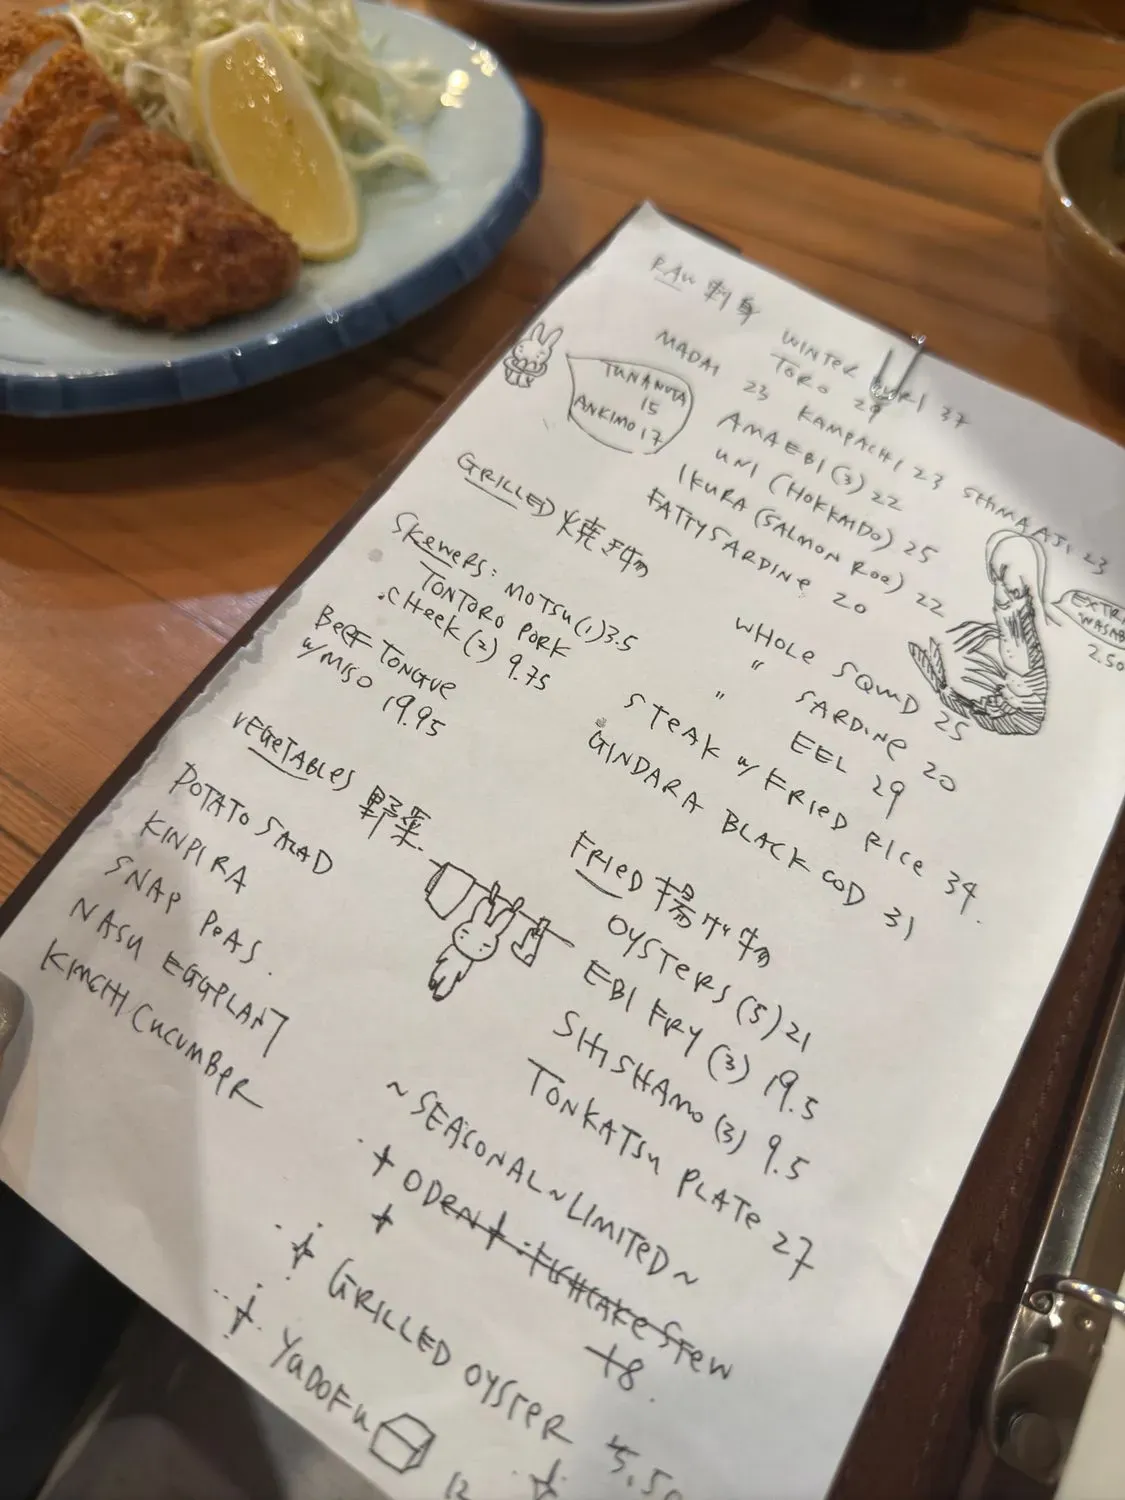 RAW 刺身
WINTER BURI 37
TORO 29
MADAI 23 KAMPACHI 23 SHIMA AJI 23
AMAEBI (3) 22
UNI (HOKKAIDO) 25
IKURA (SALMON ROE) 22
FATTY SARDINE 20
15
ANKIMO 17
EXTRA
WASABI
2.50
GRILLED 焼き物
SKEWERS: MOTSU (1) 3.5
TONTORO PORK
CHEEK (2) 9.75
BEEF TONGUE
W/ MISO 19.95
WHOLE SQUID 25
" SARDINE 20
" EEL 29
STEAK W/ FRIED RICE 34.
GINDARA BLACK COD 31
VEGETABLES 野菜
POTATO SALAD
KINPIRA
SNAP PEAS.
NASU EGGPLANT
KIMCHI/CUCUMBER
FRIED 揚げ物
OYSTERS (5) 21
EBI FRY (3) 19.5
SHISHAMO (3) 9.5
TONKATSU PLATE 27
~SEASONAL~LIMITED~
ODEN FISHCAKE STEW
18.
GRILLED OYSTER 5.50
YUDOFU 12